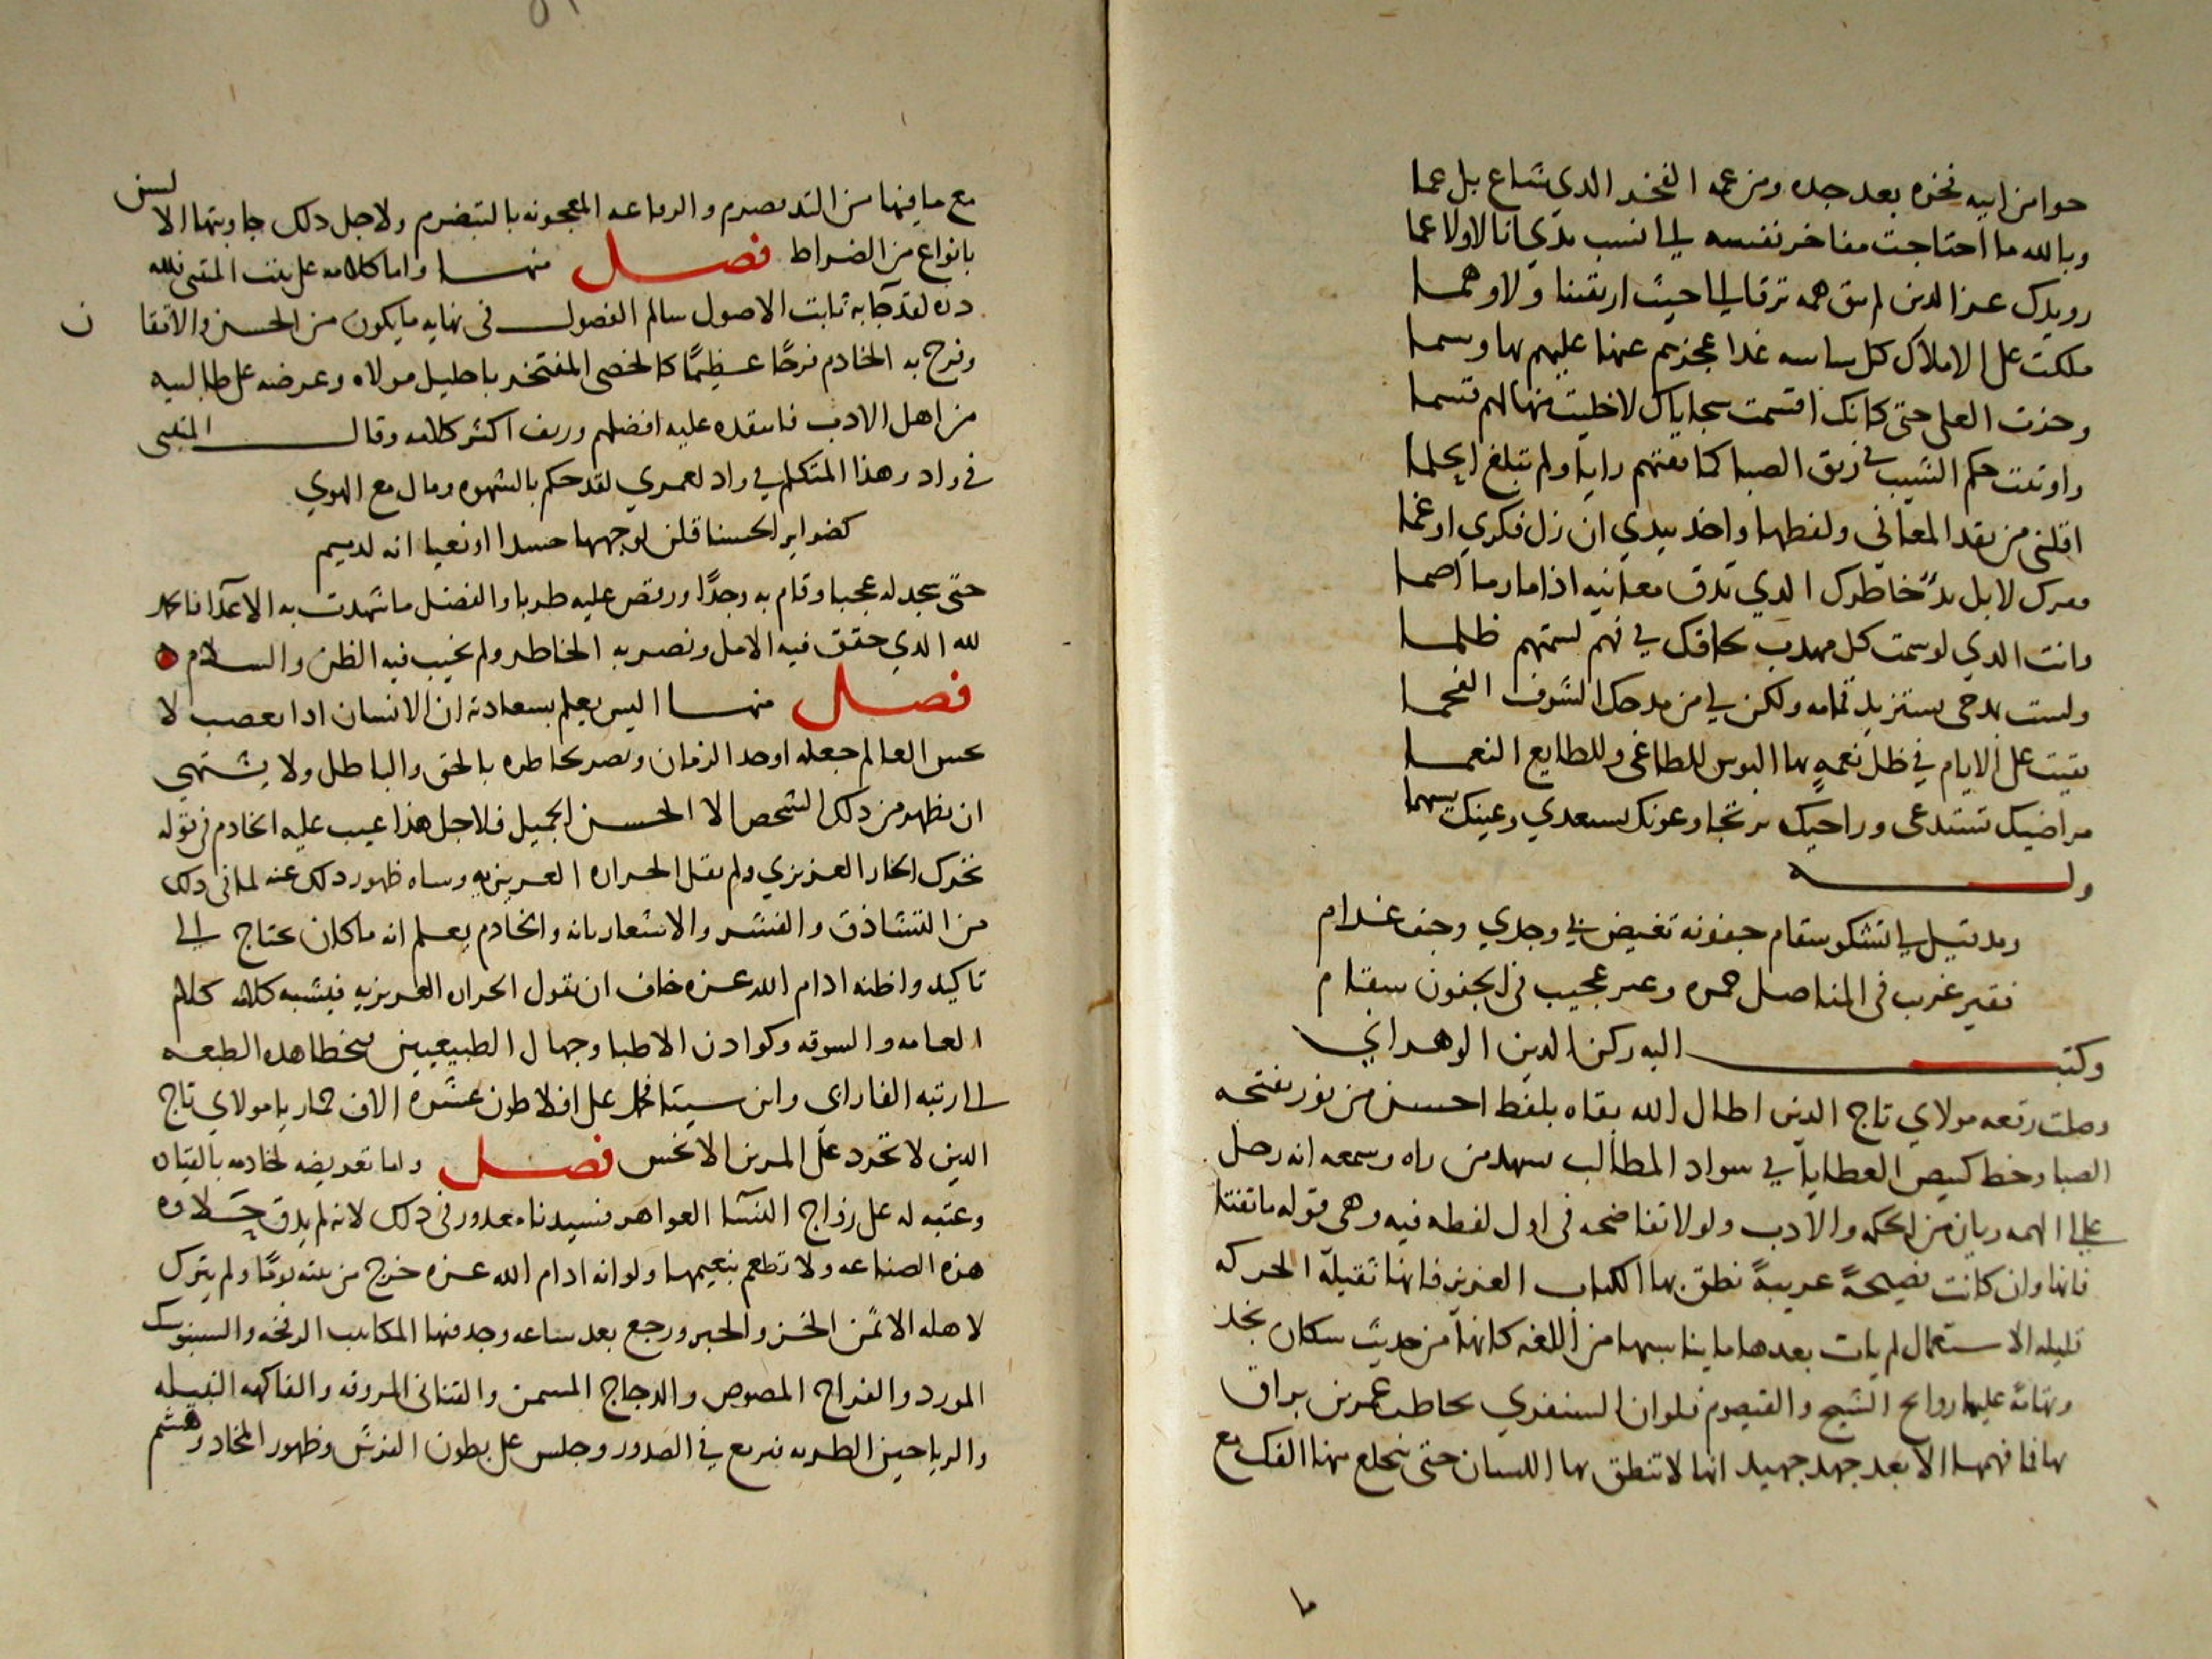 حوا من ابيه فخره بعد جده ومن عمه الفخر الذي شاع بل عما
وبالله ما احتاجت مفاخر نفسه الى نسب يدي انا لا ولا عما
رويدك عز الدين لم تبق همه ترقا الى حيث ارتقينا ولا وهما
ملكت على الاملاك كل سياسه غدا عجزهم عنها عليهم بها وسما
وحزت العلى حتى كانك اقتسمت سجاياك لا خليت منها لهم قسما
واوتيت حكم الشيب في ريق الصبا كما فقتهم رايا ولم تبلغ الحلما
اقلني من نقد المعاني ولفظها واخذ بيدي ان زل فكري او غما
خاطرك الذي تدق معانيه اذا ما رما اصما
وانت الذي لو سمت كل مهذب لحاقك في فهم لسمتهم ظلما
ولست بمدحي مستزيد تمامه ولكن لي من مدحك الشرف الفخما
بقيت على الايام في ظل نعمةٍ بها البوس للطاغي وللطايع النعما
مراضيك تستدعى وراحيك يرتجا وعونك يستعدي وعينك
وله
ومد قيل لي تشكو سقام جفونه تغيض في وجدي وجف غرام
فقير غرب في المناصل حمره وغير عجيب في الجفون سقام
وكتب اليه ركن الدين الوهراني
وصلت رقعه مولاي تاج الدين اطال الله بقاه بلفظ احسن من نور تفتحه
الصبا وخط كبيض العطايا في سواد المطالب يشهد من راه وسمعه انه رجل
عالي الهمه ريان من الحكمه والادب ولولا تفاضحه في اول لفظه فيه وهى قوله ما تفتا
فانها وان كانت فصيحةً عربيةً نطق بها الكتاب العزيز فانها ثقيلة الحركه
قليله الاستعمال لم يات بعدها ما يناسبها من اللغه كانها من حديث سكان نجد
وتهامة عليها روايح الشيح والقيصوم فلو ان الشنفري يخاطب عمرو بن براق
بها فا فهمها الا بعد جهد جهيد انها لا تنطق بها اللسان حتى ينخلع منها الفك مع
ما
مع ما فيها من والرقاعه المعجونه بالتبضرم ولاجل ذلك جاوبتها الالسن
بانواع من الضراط فصل منها واما كلامه على بيت المتنبي فلله
دره لقد جا به ثابت الاصول سالم الفصول في نهايه ما يكون من الحسن والاتقان
وفرح به الخادم فرحًا عظيمًا كالخصى المفتخر باحليل مولاه وعرضه على طالبيه
من اهل الادب فانتقده عليه افضلهم وزيف اكثر كلامه وقال المتنبي
في واد وهذا المتكلم في واد لعمري لقد حكم بالشهوه ومال مع الهوي
كضراير الحسنا قلن لوجهها حسدا وبغيا انه لدميم
حتى سجد له عجبا وقام به وجدًا ورقص عليه طربا والفضل ما شهدت به الاعدآ فالحمد
لله الذي حقق فيه الامل ونصر به الخاطر ولم يخيب فيه الظن والسلام
فصل منها اليس يعلم بسعادته ان الانسان اذا تعصب لا
العالم جعله اوحد الزمان وبصر بخاطره بالحق والباطل ولا يشتهي
ان يظهر من ذلك الشخص الا الحسن الجميل فلاجل هذا عيب عليه الخادم في قوله
تحرك البخار الغزيزي ولم يقل الحراره الغريزيه وساه ظهور ذلك عنه لما في ذلك
من التشادق والفشر والاشعار بانه والخادم يعلم انه ما كان يحتاج الى
تاكيد واظنه ادام الله عزه خاف ان يقول الحراره الغريزيه فيشبه كلامه كلام
العامه والسوقه وكوادن الاطبا وجهال الطبيعيين فيخطا هذه الطبقه
الى رتبه الفارابي وابن سينا على افلاطون عشرة الاف حمار يا مولاي تاج
الدين لا تخرد على المرين الا نحس فصل واما تعريضه لخادمه بالقيان
وعتبه له على زواج النسآ العواهر فسيدنا معذور في ذلك لانه لم يذق حلاوه
هذه الصناعه ولا تطعم بنعيمها ولو انه ادام الله عزه خرج من بيته يومًا ولم يترك
لاهله الا ثمن الخبز والجبن ورجع بعد ساعه وجد فيها المكابب والسنبوسك
المورد والفراج المصوص والدجاج المسمن والقناني المروقه والفاكهه النفيسه
والرياحين الطريه فتربع في الصدور وجلس على بطون الفرش وظهور المخاد وهشم